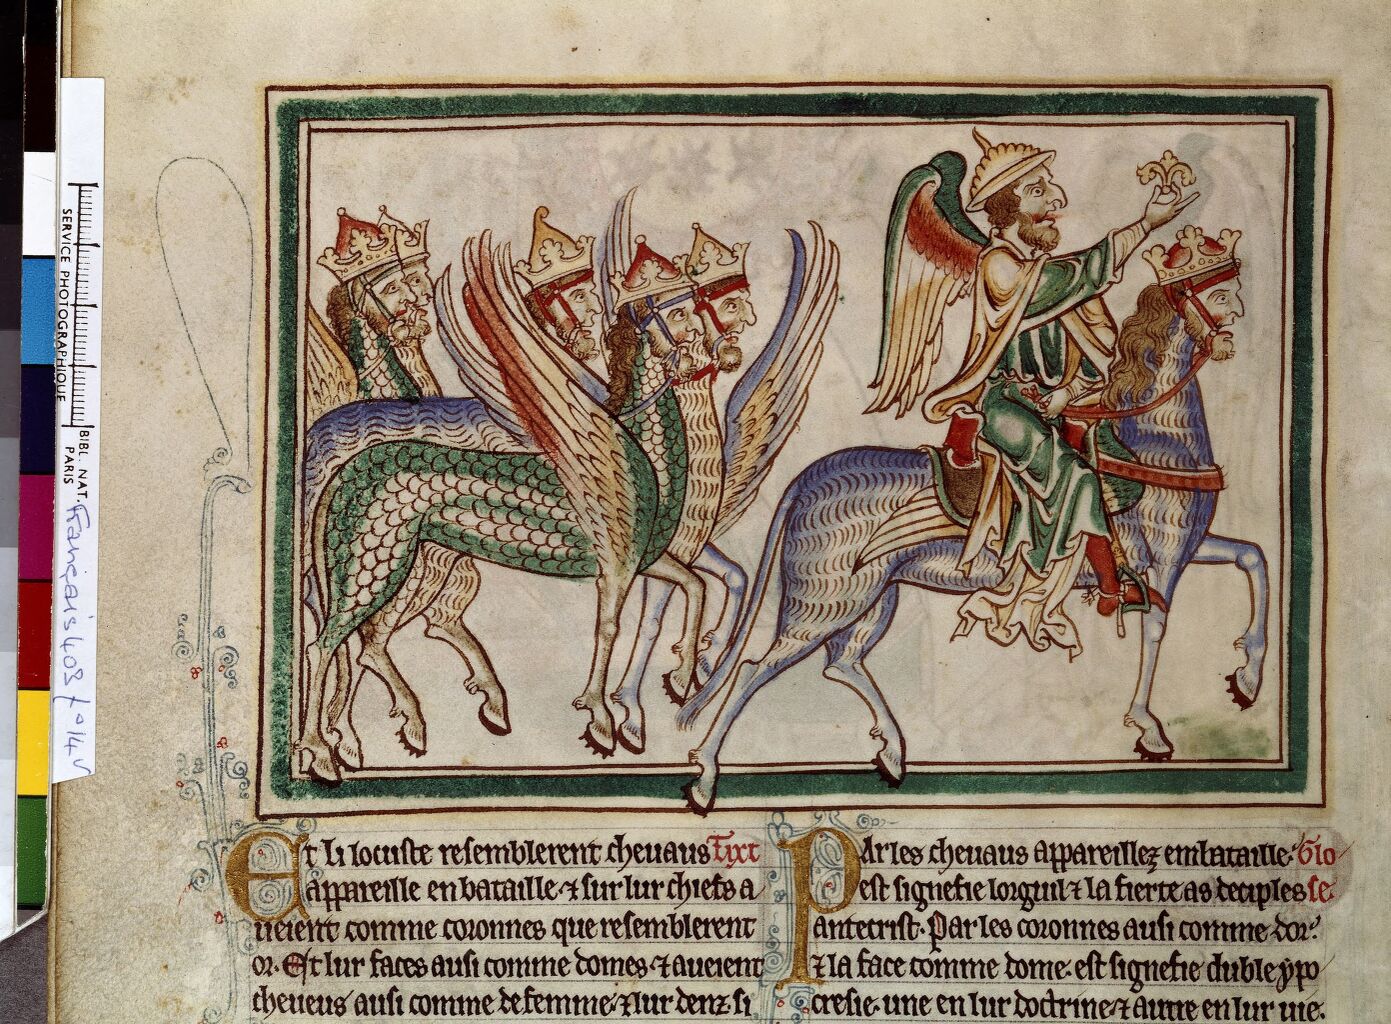 SERVICE PHOTOGRAPHIQUE
BIBL. NAT. PARIS
Français 403 fº 14 v
Et li locuste resemblerent chevaus Tixt
appareille en bataille ⁊ sur lur chiefs a
veient comme coronnes que resemblerent
or. Et lur faces ausi comme domes ⁊ aveient
cheveus ausi comme de femme. ⁊ lur denz si
Par les chevaus appareillez em bataille. Glo
est signefie lorguil ⁊ la fierte as deciples se
antecrist. Par les coronnes ausi comme dor.
⁊ la face comme dome. est signefie duble ypo
cresie. une en lur doctrine ⁊ autre en lur vie.